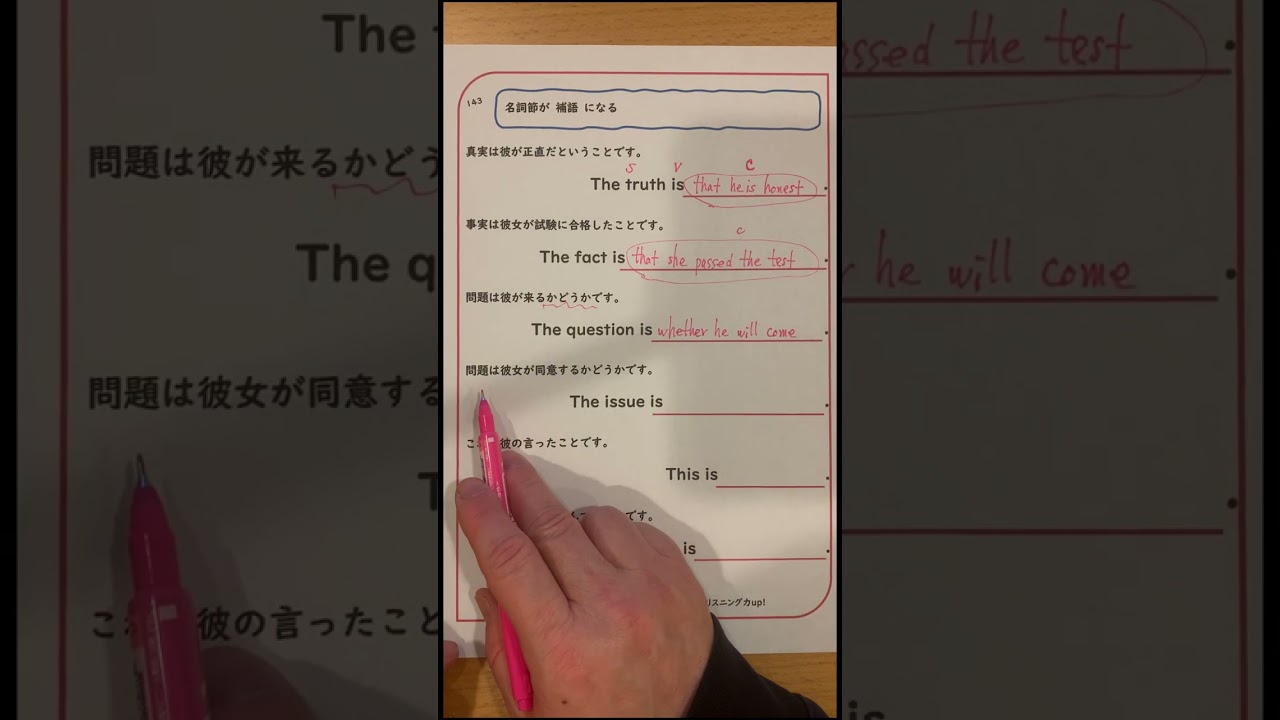 143
名詞節が 補語 になる
真実は彼が正直だということです。
S V C
The truth is that he is honest.
事実は彼女が試験に合格したことです。
C
The fact is that she passed the test.
問題は彼が来るかどうかです。
The question is whether he will come.
問題は彼女が同意するかどうかです。
The issue is .
こ 彼の言ったことです。
This is .
です。
is .
リスニング力up!